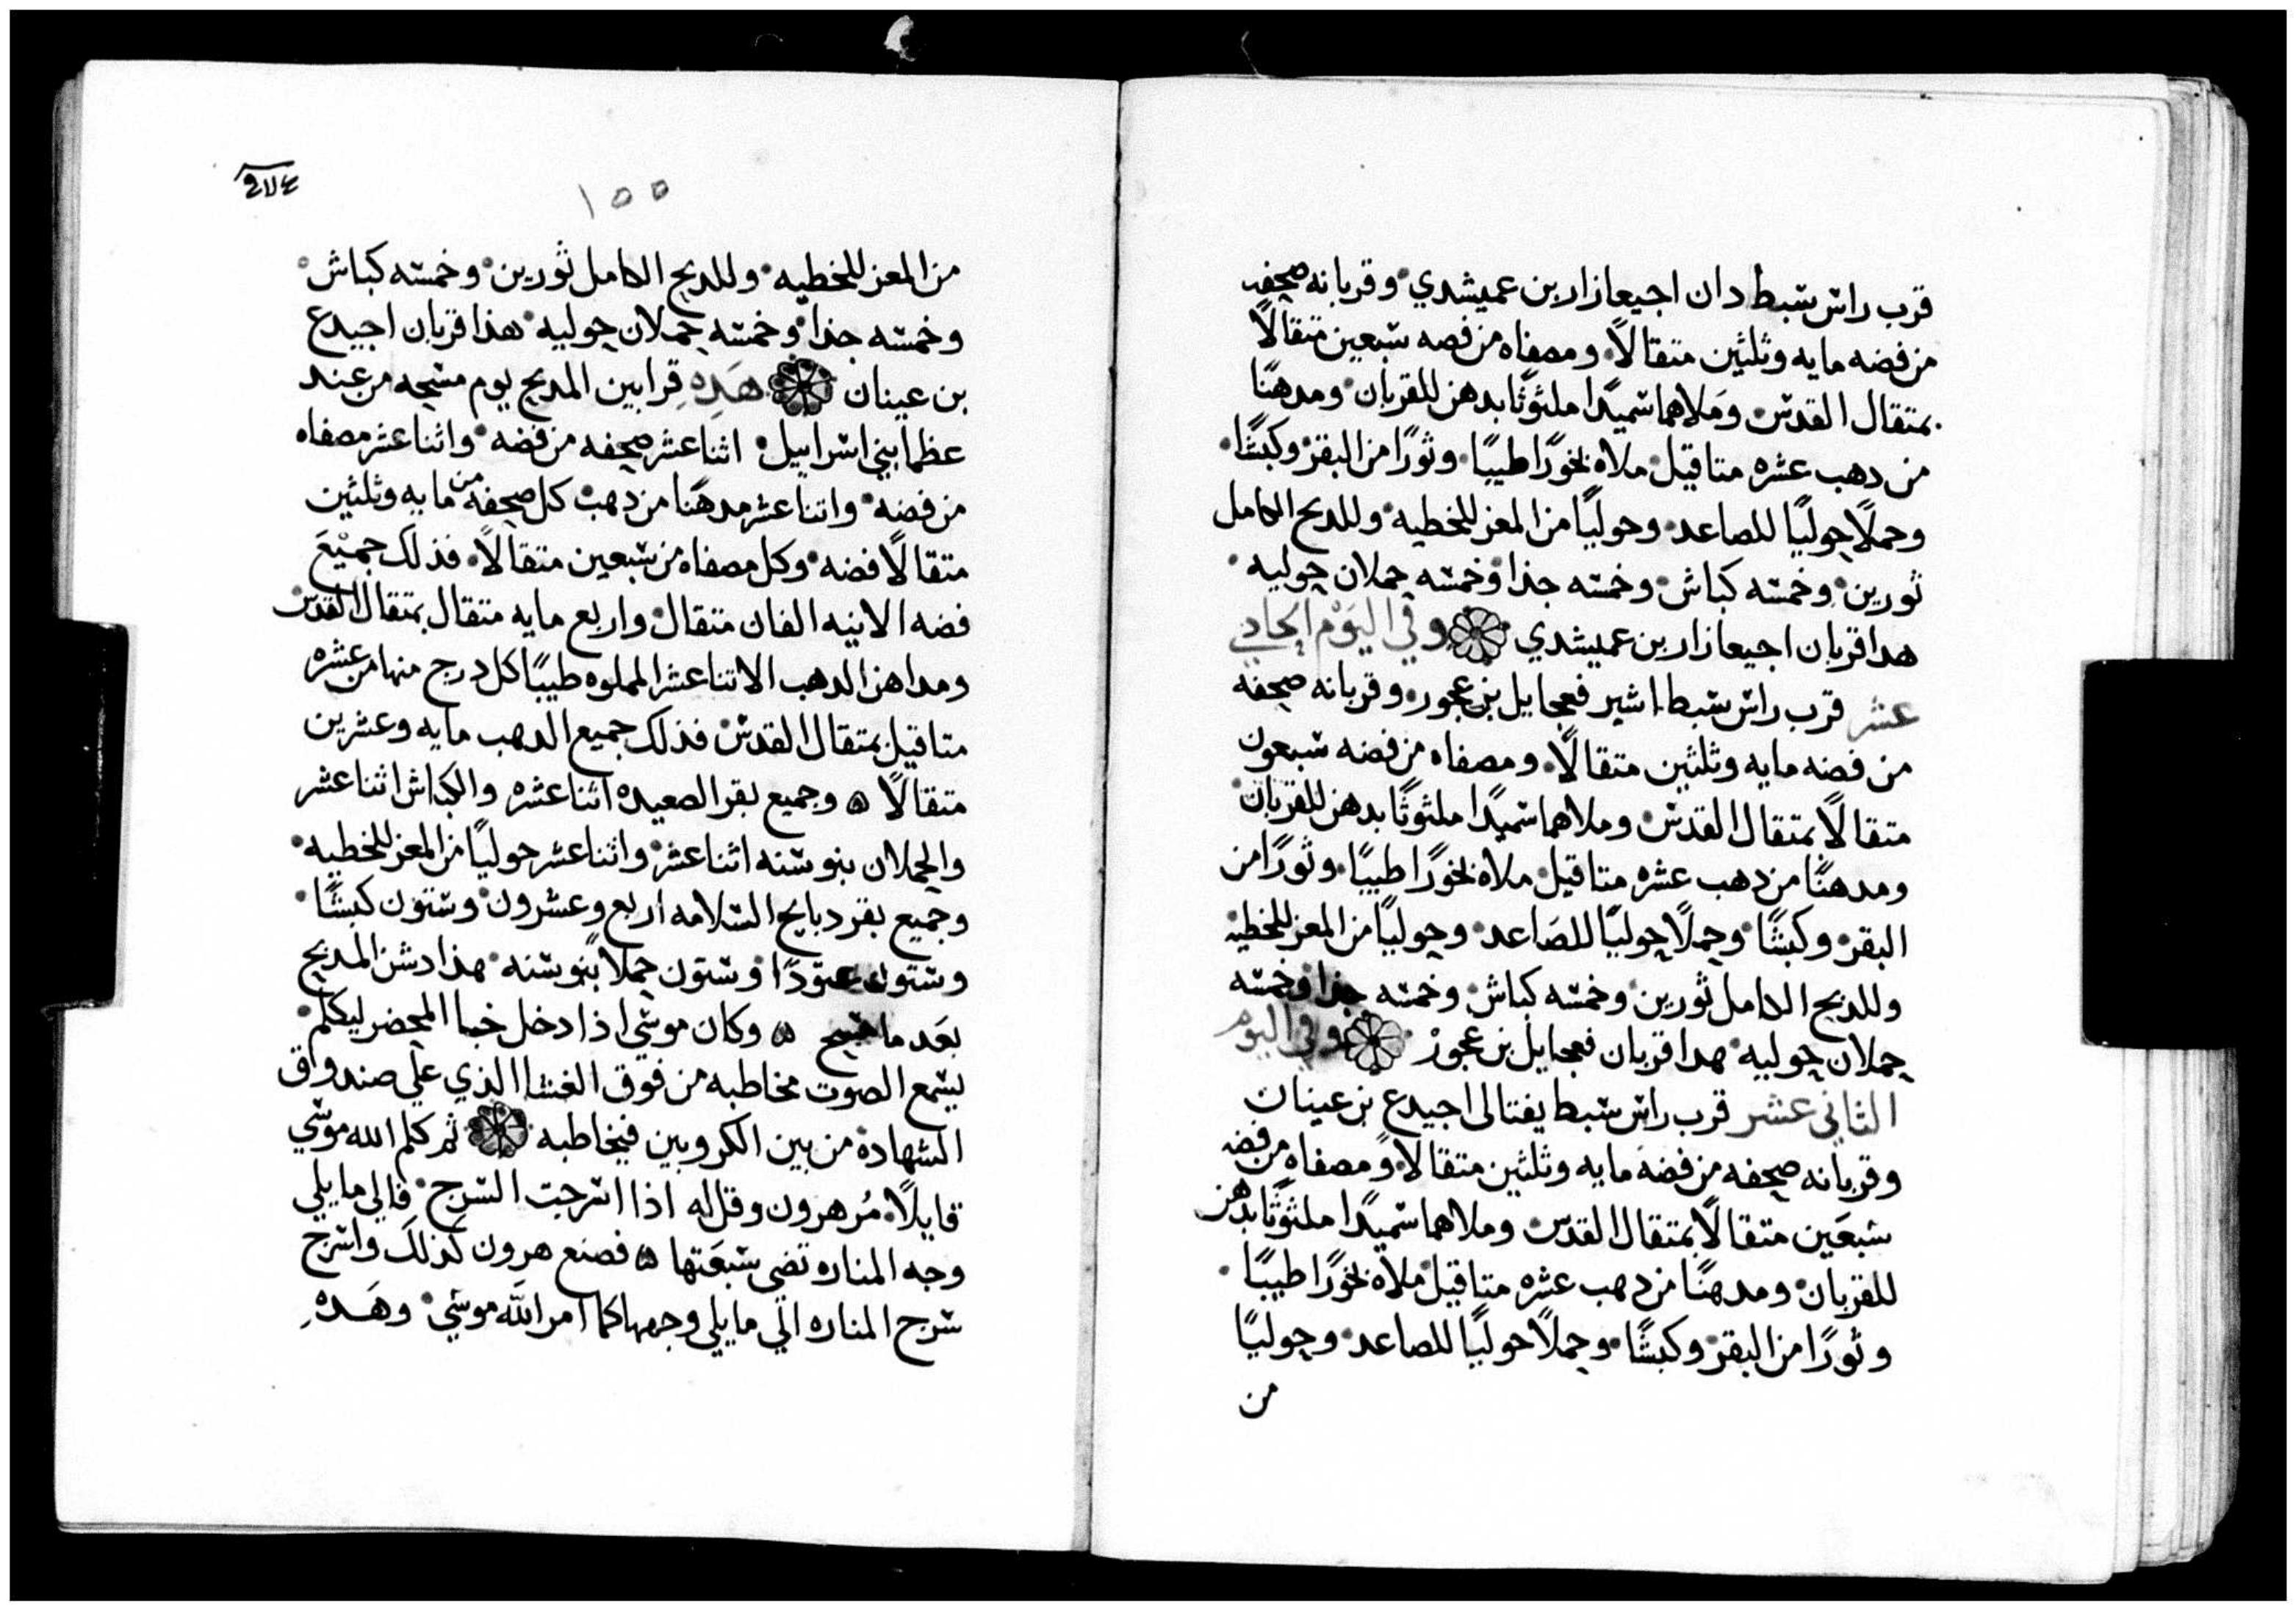 قرب راس سبط دان اجيعازار بن عميشدي وقربانه صحفه
من فضه مايه وثلثين متقالًا ومصفاه من فصه سبعين متقالًا
بمتقال القدس وملاهما سميدًا ملثوثًا بدهن للقربان ومدهنًا
من دهب عشره متاقيل ملاه بخورًا طيبًا وثورًا من البقر وكبشًا
وحملًا حوليًا للصاعد وحوليًا من المعز للخطيه وللدبح الكامل
ثورين وخمسه كباش وخمسه جذا وخمسه حملان حوليه
هدا قربان اجيعازار بن عميشدي وفي اليوم الحادي
عشر قرب راس سبط اشير فعجايل بن عجور وقربانه صحفه
من فضه مايه وثلثين متقالًا ومصفاه من فضه سبعون
متقالًا بمتقال القدس وملاهما سميدًا ملثوثًا بدهن للقربان
ومدهنًا من دهب عشره متاقيل ملاه بخورًا طيبًا وثورًا من
البقر وكبشًا وحملًا حوليًا للصاعد وحوليًا من المعز للخطيه
وللدبح الكامل ثورين وخمسه كباش وخمسه جذا وخمسه
حملان حوليه هدا قربان فعجايل بن عجور وفي اليوم
الثاني عشر قرب راس سبط يفتالى اجيدع بن عينان
وقربانه صحفه من فضه مايه وثلثين متقالًا ومصفاه من فضه
سبعين متقالًا بمتقال القدس وملاهما سميدًا ملثوثًا بدهن
للقربان ومدهنًا من دهب عشره متاقيل ملاه بخورًا طيبًا
وثورًا من البقر وكبشًا وحملًا حوليًا للصاعد وحوليًا
من
١٥٥
من المعز للخطيه وللدبح الكامل ثورين وخمسه كباش
وخمسه جذا وخمسه حملان حوليه هذا قربان اجيدع
بن عينان هَدِهِ قرابين المدبح يوم مسحه من عند
عظما بني اسراييل اثنا عشر صحفه من فضه واثنا عشر مصفاه
من فضه واتنا عشر مدهنًا من دهب كل صحفه من مايه وثلثين
متقالًا فضه وكل مصفاه من سبعين متقالًا فذلك جميع
فضه الانيه الفان متقال واربع مايه متقال بمتقال القدس
ومداهن الدهب الاتنا عشر المملوه طيبًا كل درج منها من عشره
متاقيل بمتقال القدس فذلك جميع الدهب مايه وعشرين
متقالًا ه وجميع بقر الصعيده اثنا عشره والكباش اثنا عشر
والحملان بنو سنه اثنا عشر واثنا عشر حوليًا من المعز للخطيه
وجميع بقر دبايح السلامه اربع وعشرون وستون كبشًا
وستون عتودًا وستون حملًا بنو سنه هذا دشن المدبح
بعد ما مسح ه وكان موسي اذا دخل خبا المحضر ليكلم
يسمع الصوت مخاطبه من فوق الغشا الذي على صندواق
الشهادة من بين الكروبين فيخاطبه ثم كلم الله موسي
قايلًا مُر هرون وقل له اذا اسرجت السرج فالي ما يلي
وجه المناره تضى سبعَتها ه فصنع هرون كذلك واسرج
سرج المناره الي ما يلي وجهها كما امر الله موسي وهَدِهِ